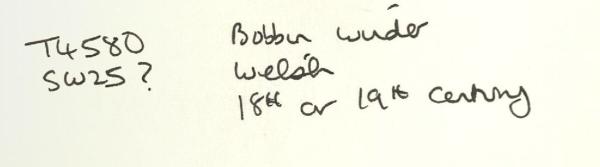 T4580 Bobbin winder
SW25? Welsh
18th or 19th century